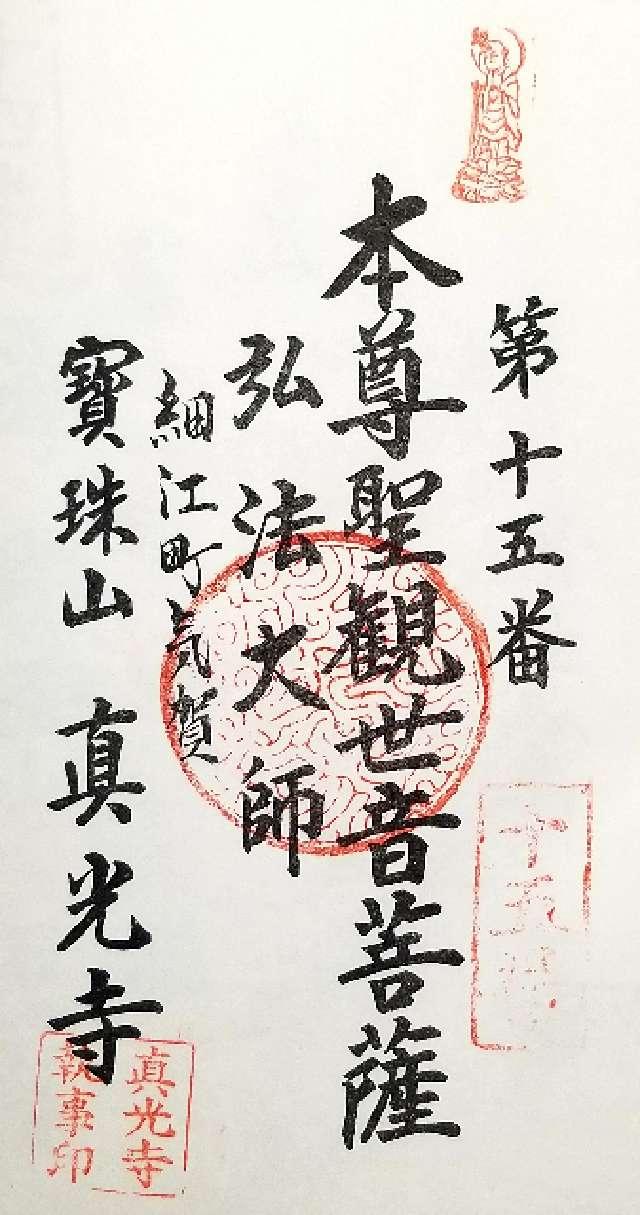 第十五番
十五番
本尊聖観世音菩薩
弘法大師
細江町気賀
寶珠山 真光寺
真光寺
執事印